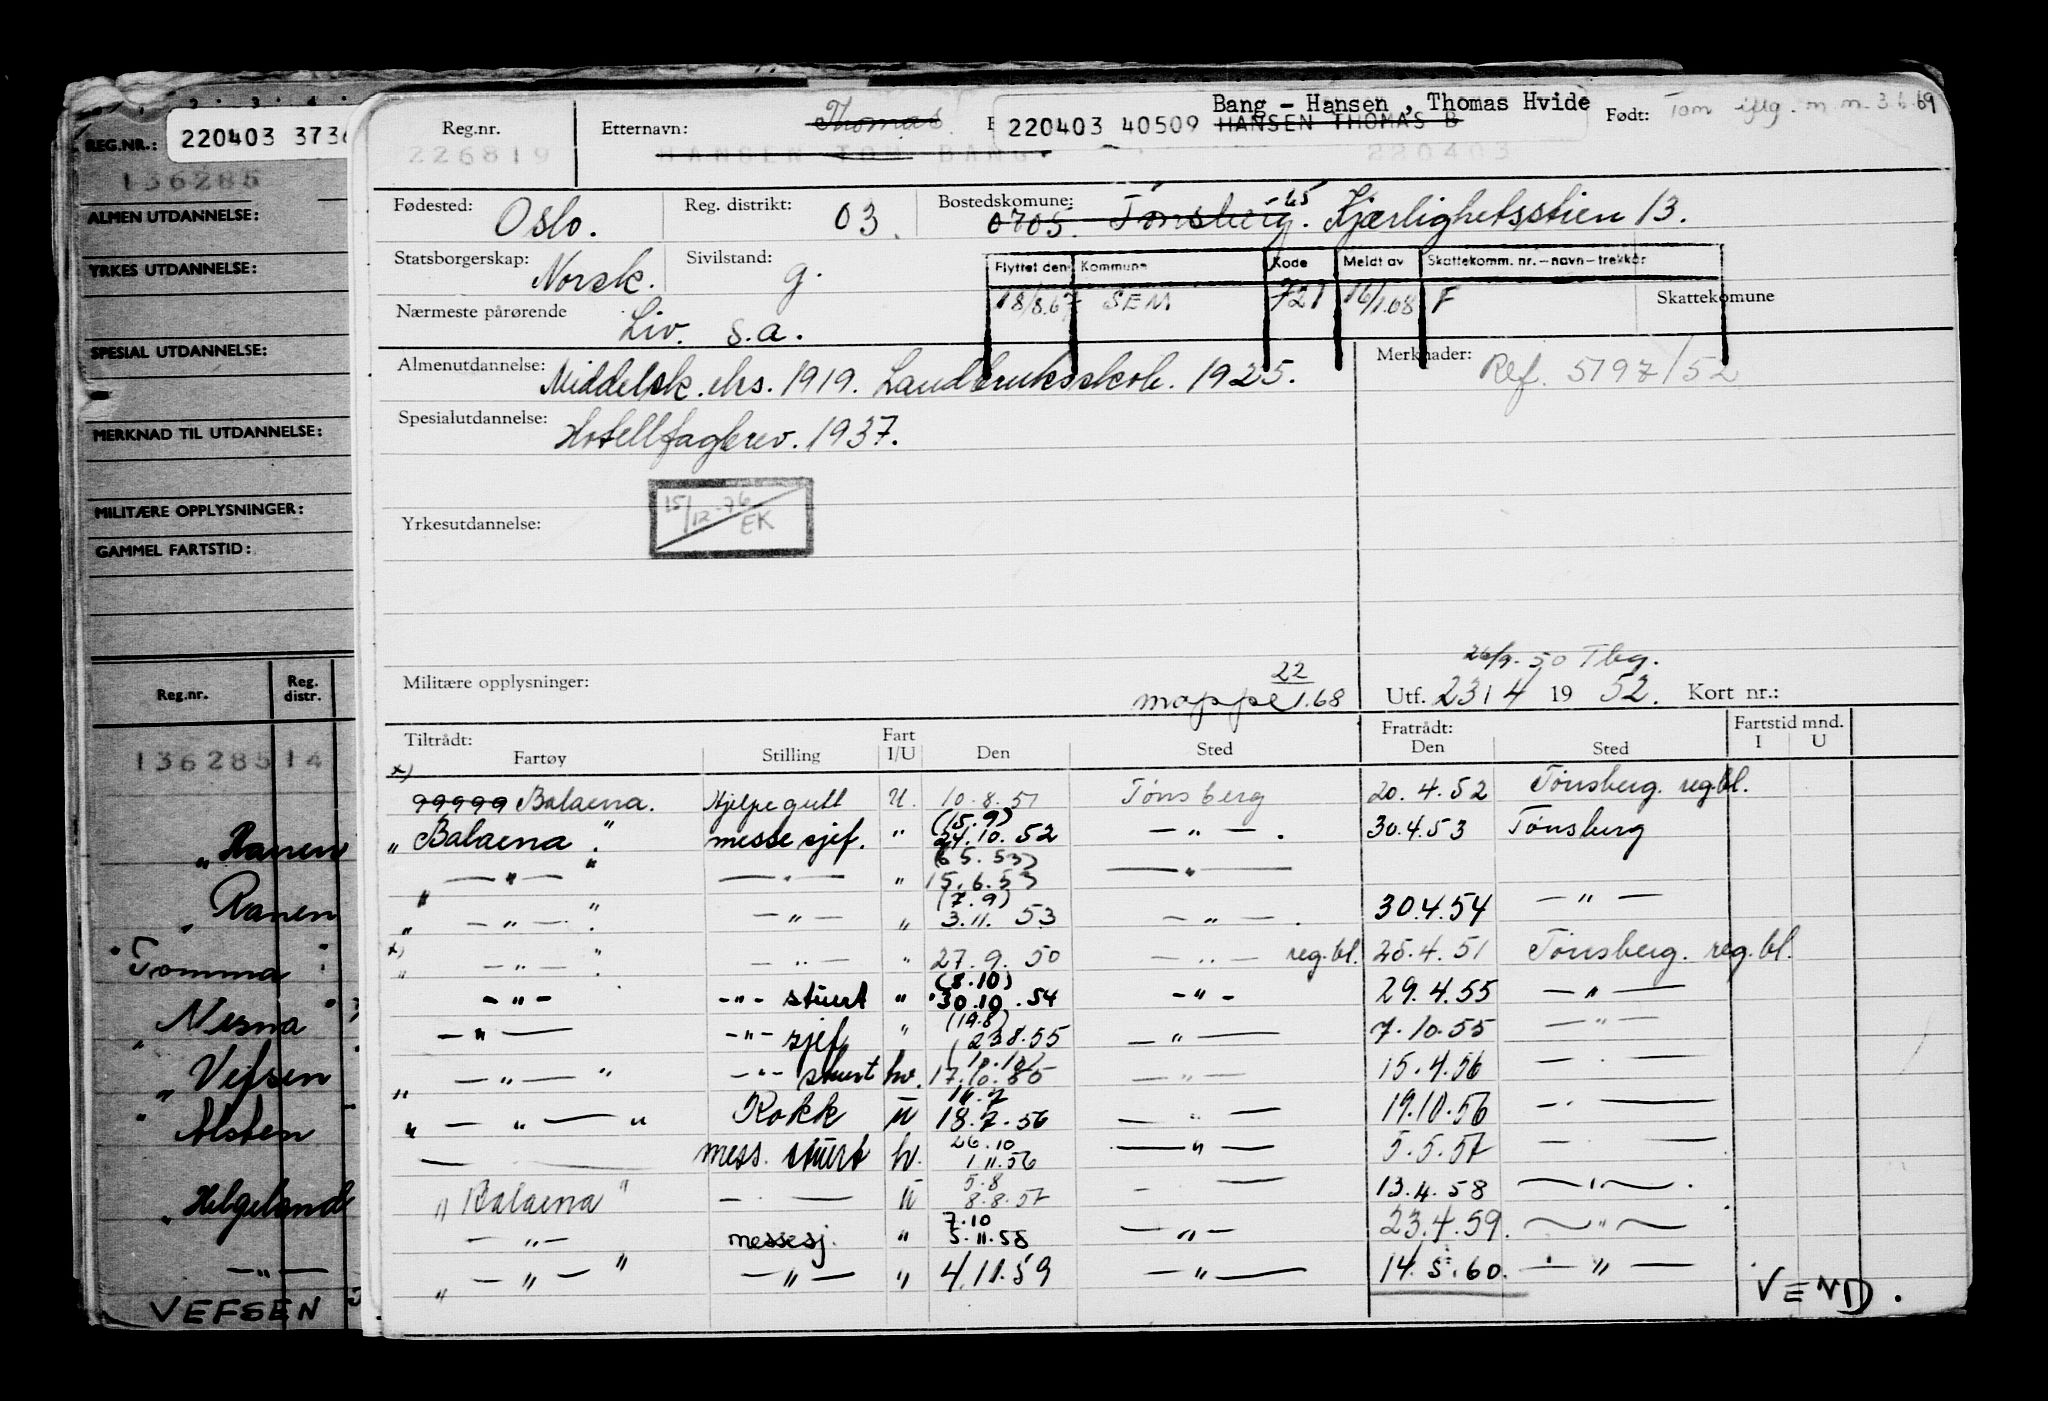 REG.NR.: 220403 3736
136285
ALMEN UTDANNELSE:
YRKES UTDANNELSE:
SPESIAL UTDANNELSE:
MERKNAD TIL UTDANNELSE:
MILITÆRE OPPLYSNINGER:
GAMMEL FARTSTID:
Reg.nr. Reg. distr.
136285 14
" Ranen
" Ranen
" Tomma "
" Nesna "
" Vefsen "
" Alsten
" Helgeland
— " —
VEFSEN
Bang - Hansen, Thomas Hvide
Reg.nr. Etternavn: Thomas 220403 40509 HANSEN THOMAS B Født: Tom iflg. m.n. 3.6.69
226819 HANSEN TOM BANG 220403
Fødested: Oslo. Reg. distrikt: 03. Bostedskomune: 0705. Tønsberg. Kjærlighetsstien 13.
Statsborgerskap: Norsk. Sivilstand: g.
Flyttet den Kommune Kode Meldt av Skattekomm. nr.-navn-trekkår
18/8.67 SEM 721 16/1.68 F Skattekomune
Nærmeste pårørende Liv. s.a.
Almenutdannelse: Middelsk. eks. 1919. Landbruksskole. 1925. Merknader: Ref. 5197/52
Spesialutdannelse: Hotellfagbrev. 1937.
Yrkesutdannelse: 15/12-76 EK
26/9-50 Tbg.
Militære opplysninger: mappe 22/1.68 Utf. 23/4 1952. Kort nr.:
Tiltrådt: Fart Fratrådt: Fartstid mnd.
Fartøy Stilling I/U Den Sted Den Sted I U
x) 99999 Balaena. Hjelpegutt U. 10.8.51 Tønsberg 20.4.52 Tønsberg. reg.bl.
(15.9)
" Balaena " messesjef. " 24.10.52 — " — . 30.4.53 Tønsberg
(6 5.53)
" — " — " — " — " 15.6.53 — " —
(7.9)
" — " — . " — " — " 3.11.53 — " — . 30.4.54 — " —
x) " — " — " — " — " 27.9.50 — " — reg.bl. 25.4.51 Tønsberg. reg.bl.
(8.10)
— " — — " — stuert " 30.10.54 — " — 29.4.55 — " —
(19.8)
— " — — " — sjef " 23.8.55 — " — 7.10.55 — " —
(10.10)
" — " — " — " — stuert hv. 17.10.55 — " — 15.4.56 — . —
14.7
" — " — " Kokk U 18.7.56 — " — 19.10.56 — . —
26.10
— mess. stuert hv. 1 11.56 — " — 5.5.57 — . —
5.8
" Balaena " — . — U 8.8.57 — . — 13.4.58 — " — .
7.10
— " — messesj. " 5.11.58 — " — 23.4.59. — " —
" — " — " — " — " 4.11.59 — " — 14.5.60. — " —
VEND.